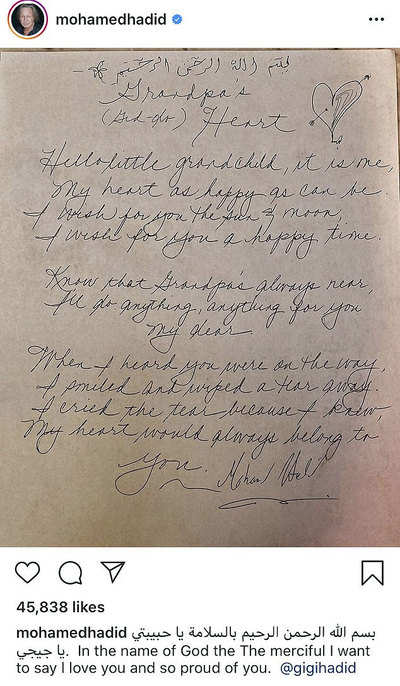 mohamedhadid
بسم الله الرحمن الرحيم
Grandpa's
(Gid-do) Heart
Hello little grandchild, it is me,
My heart as happy as can be.
I wish for you the sun & moon,
I wish for you a happy time.
Know that Grandpa's always near,
I'll do anything, anything for you
my dear
When I heard you were on the way,
I smiled and wiped a tear away.
I cried the tear because I knew,
My heart would always belong to
you.
45,838 likes
mohamedhadid بسم الله الرحمن الرحيم بالسلامة يا حبيبتي
يا جيجي. In the name of God the The merciful I want
to say I love you and so proud of you. @gigihadid